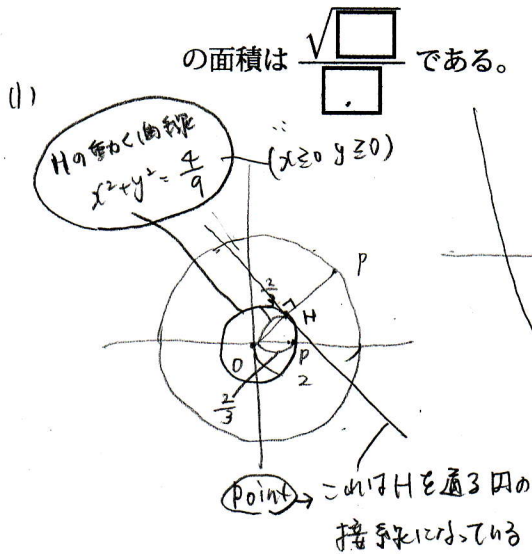 の面積は √□/□ である。
(1)
Hの動く曲線
x²+y²=4/9
(x≧0 y≧0)
P
2/3
H
O
P
2
2/3
point → これはHを通る円の
接線になっている